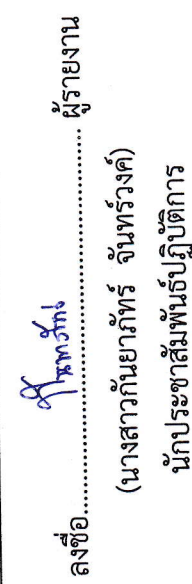 ลงชื่อ........................................ ผู้รายงาน
(นางสาวกันยาภัทร์ จันทร์วงค์)
นักประชาสัมพันธ์ปฏิบัติการ